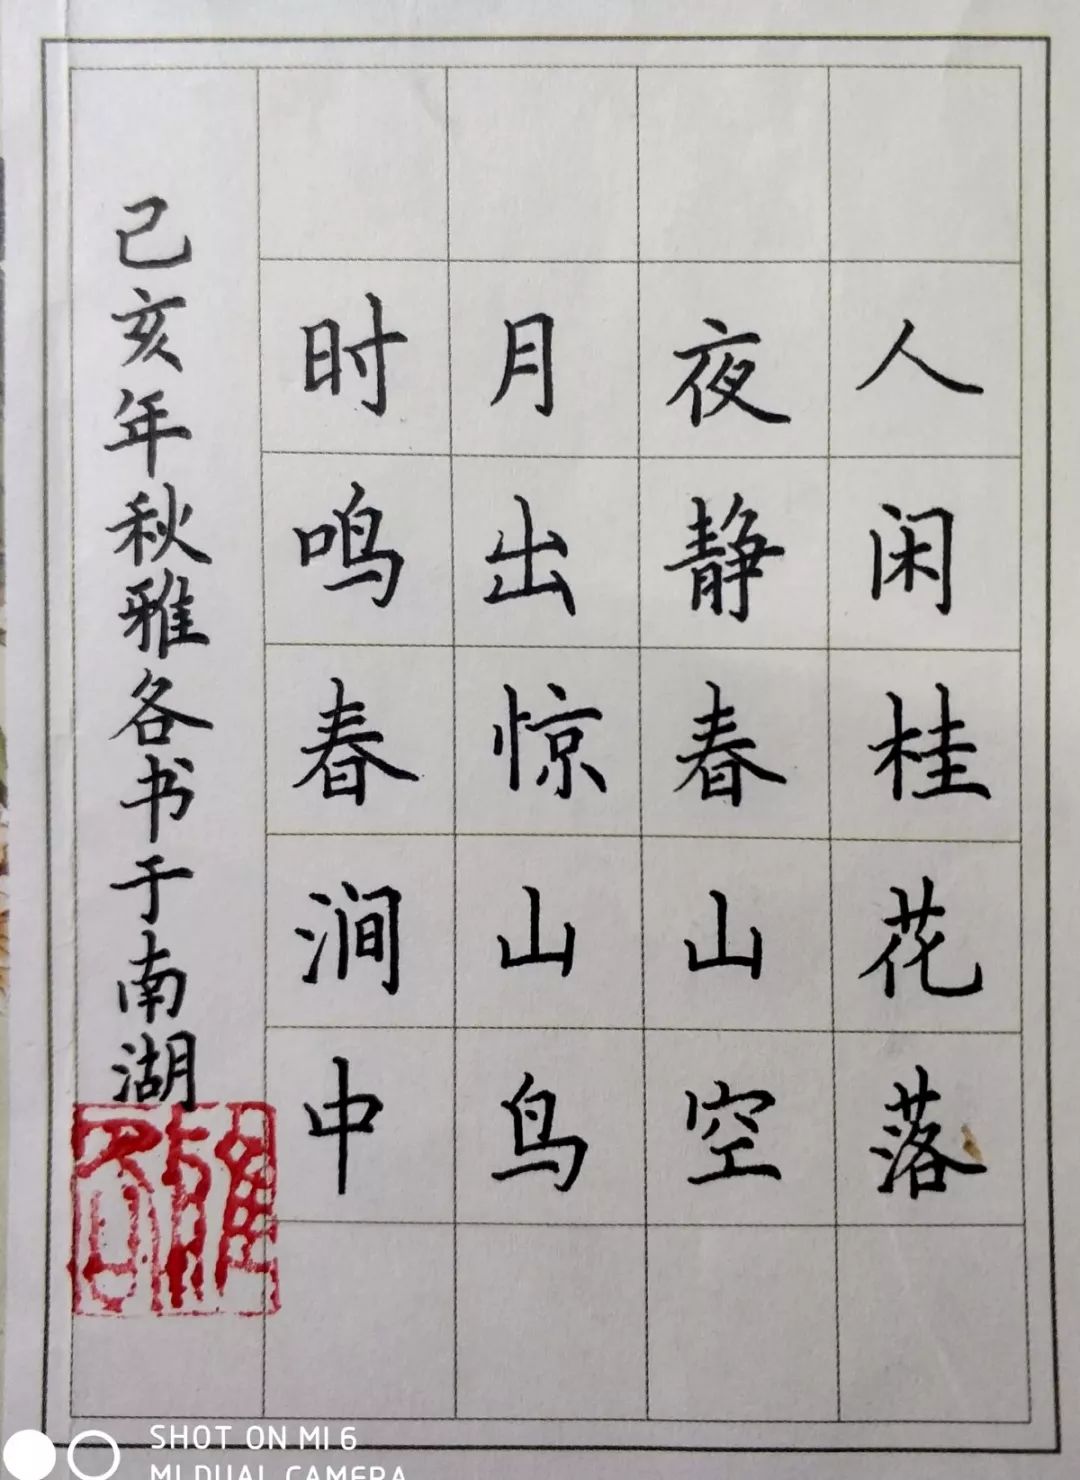 人闲桂花落
夜静春山空
月出惊山鸟
时鸣春涧中
己亥年秋雅各书于南湖
雅各
SHOT ON MI 6
MI DUAL CAMERA